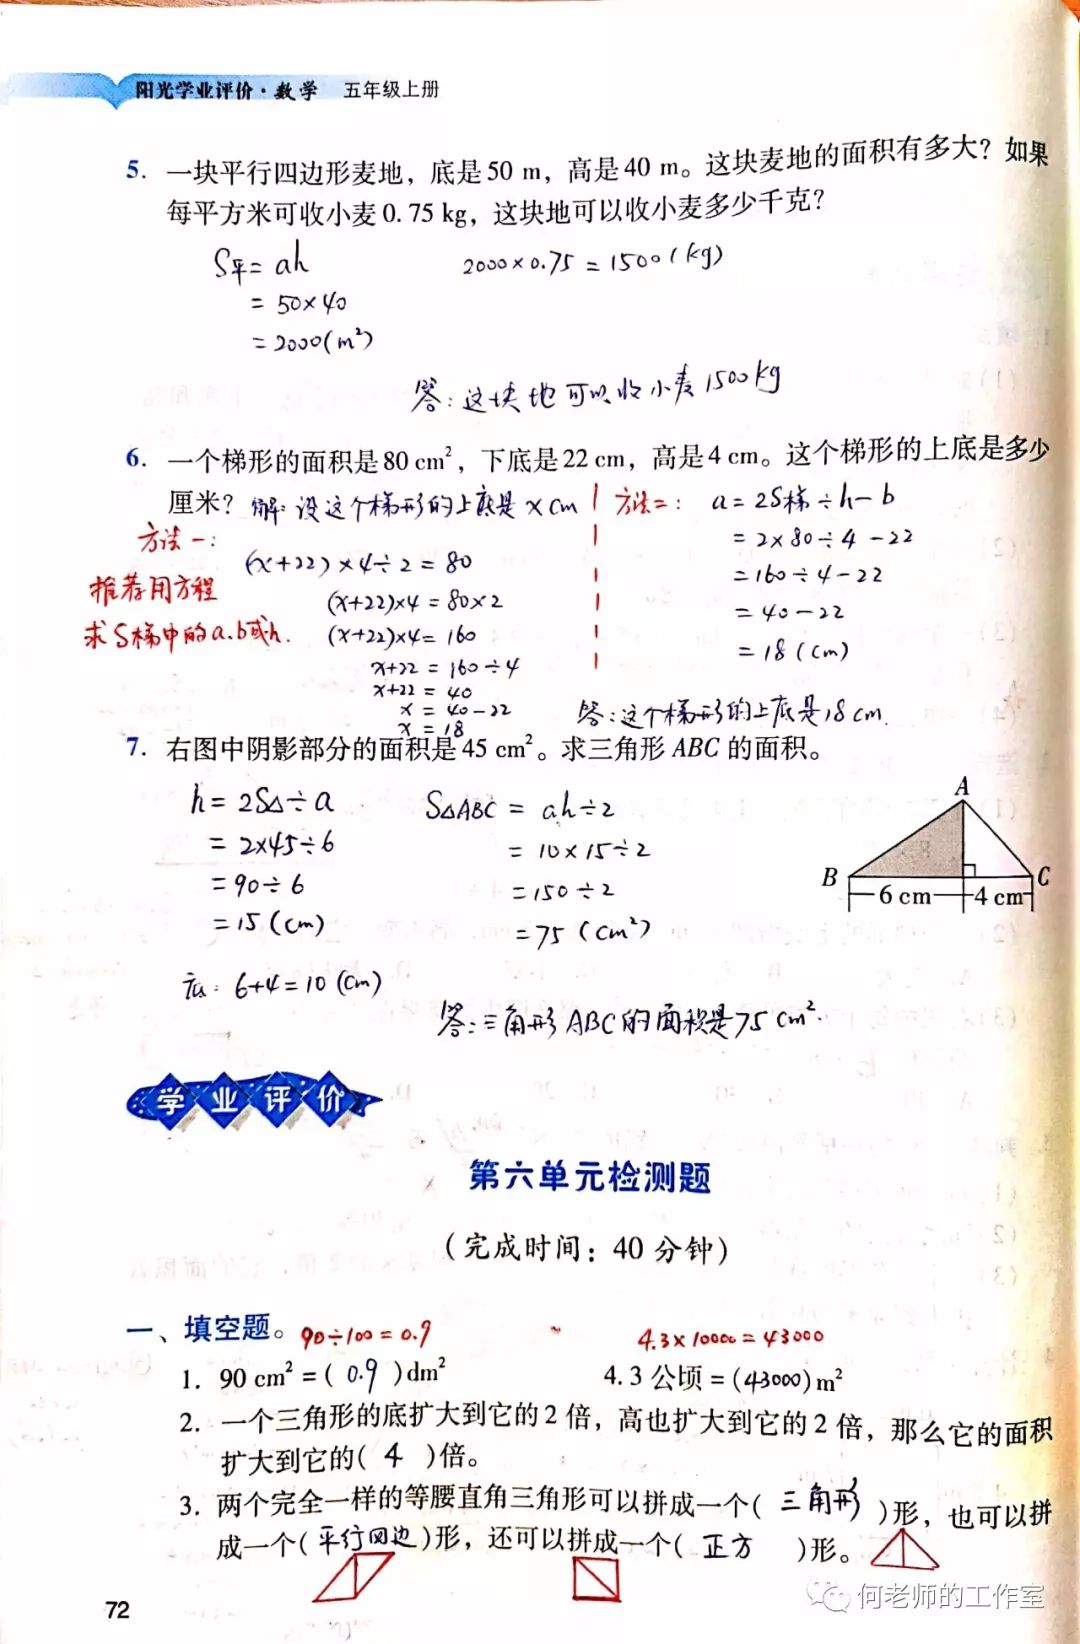 阳光学业评价·数学 五年级上册
5. 一块平行四边形麦地，底是50 m，高是40 m。这块麦地的面积有多大？如果
每平方米可收小麦0.75 kg，这块地可以收小麦多少千克？
S平=ah
=50×40
=2000(m²)
2000×0.75=1500(kg)
答:这块地可以收小麦1500kg
6. 一个梯形的面积是80 cm²，下底是22 cm，高是4 cm。这个梯形的上底是多少
厘米？ 解:设这个梯形的上底是xcm
方法一:
推荐用方程
求S梯中的a.b或h.
(x+22)×4÷2=80
(x+22)×4=80×2
(x+22)×4=160
x+22=160÷4
x+22=40
x=40-22
x=18
方法二: a=2S梯÷h-b
=2×80÷4-22
=160÷4-22
=40-22
=18(cm)
答:这个梯形的上底是18cm.
7. 右图中阴影部分的面积是45 cm²。求三角形ABC的面积。
h=2S△÷a
=2×45÷6
=90÷6
=15(cm)
底: 6+4=10(cm)
S△ABC=ah÷2
=10×15÷2
=150÷2
=75(cm²)
答:三角形ABC的面积是75cm².
A
B
C
6 cm
4 cm
学业评价
第六单元检测题
(完成时间：40分钟)
一、填空题。
90÷100=0.9
4.3×10000=43000
1. 90 cm²=(0.9)dm² 4.3公顷=(43000)m²
2. 一个三角形的底扩大到它的2倍，高也扩大到它的2倍，那么它的面积
扩大到它的(4)倍。
3. 两个完全一样的等腰直角三角形可以拼成一个(三角形)形，也可以拼
成一个(平行四边)形，还可以拼成一个(正方)形。
72
何老师的工作室